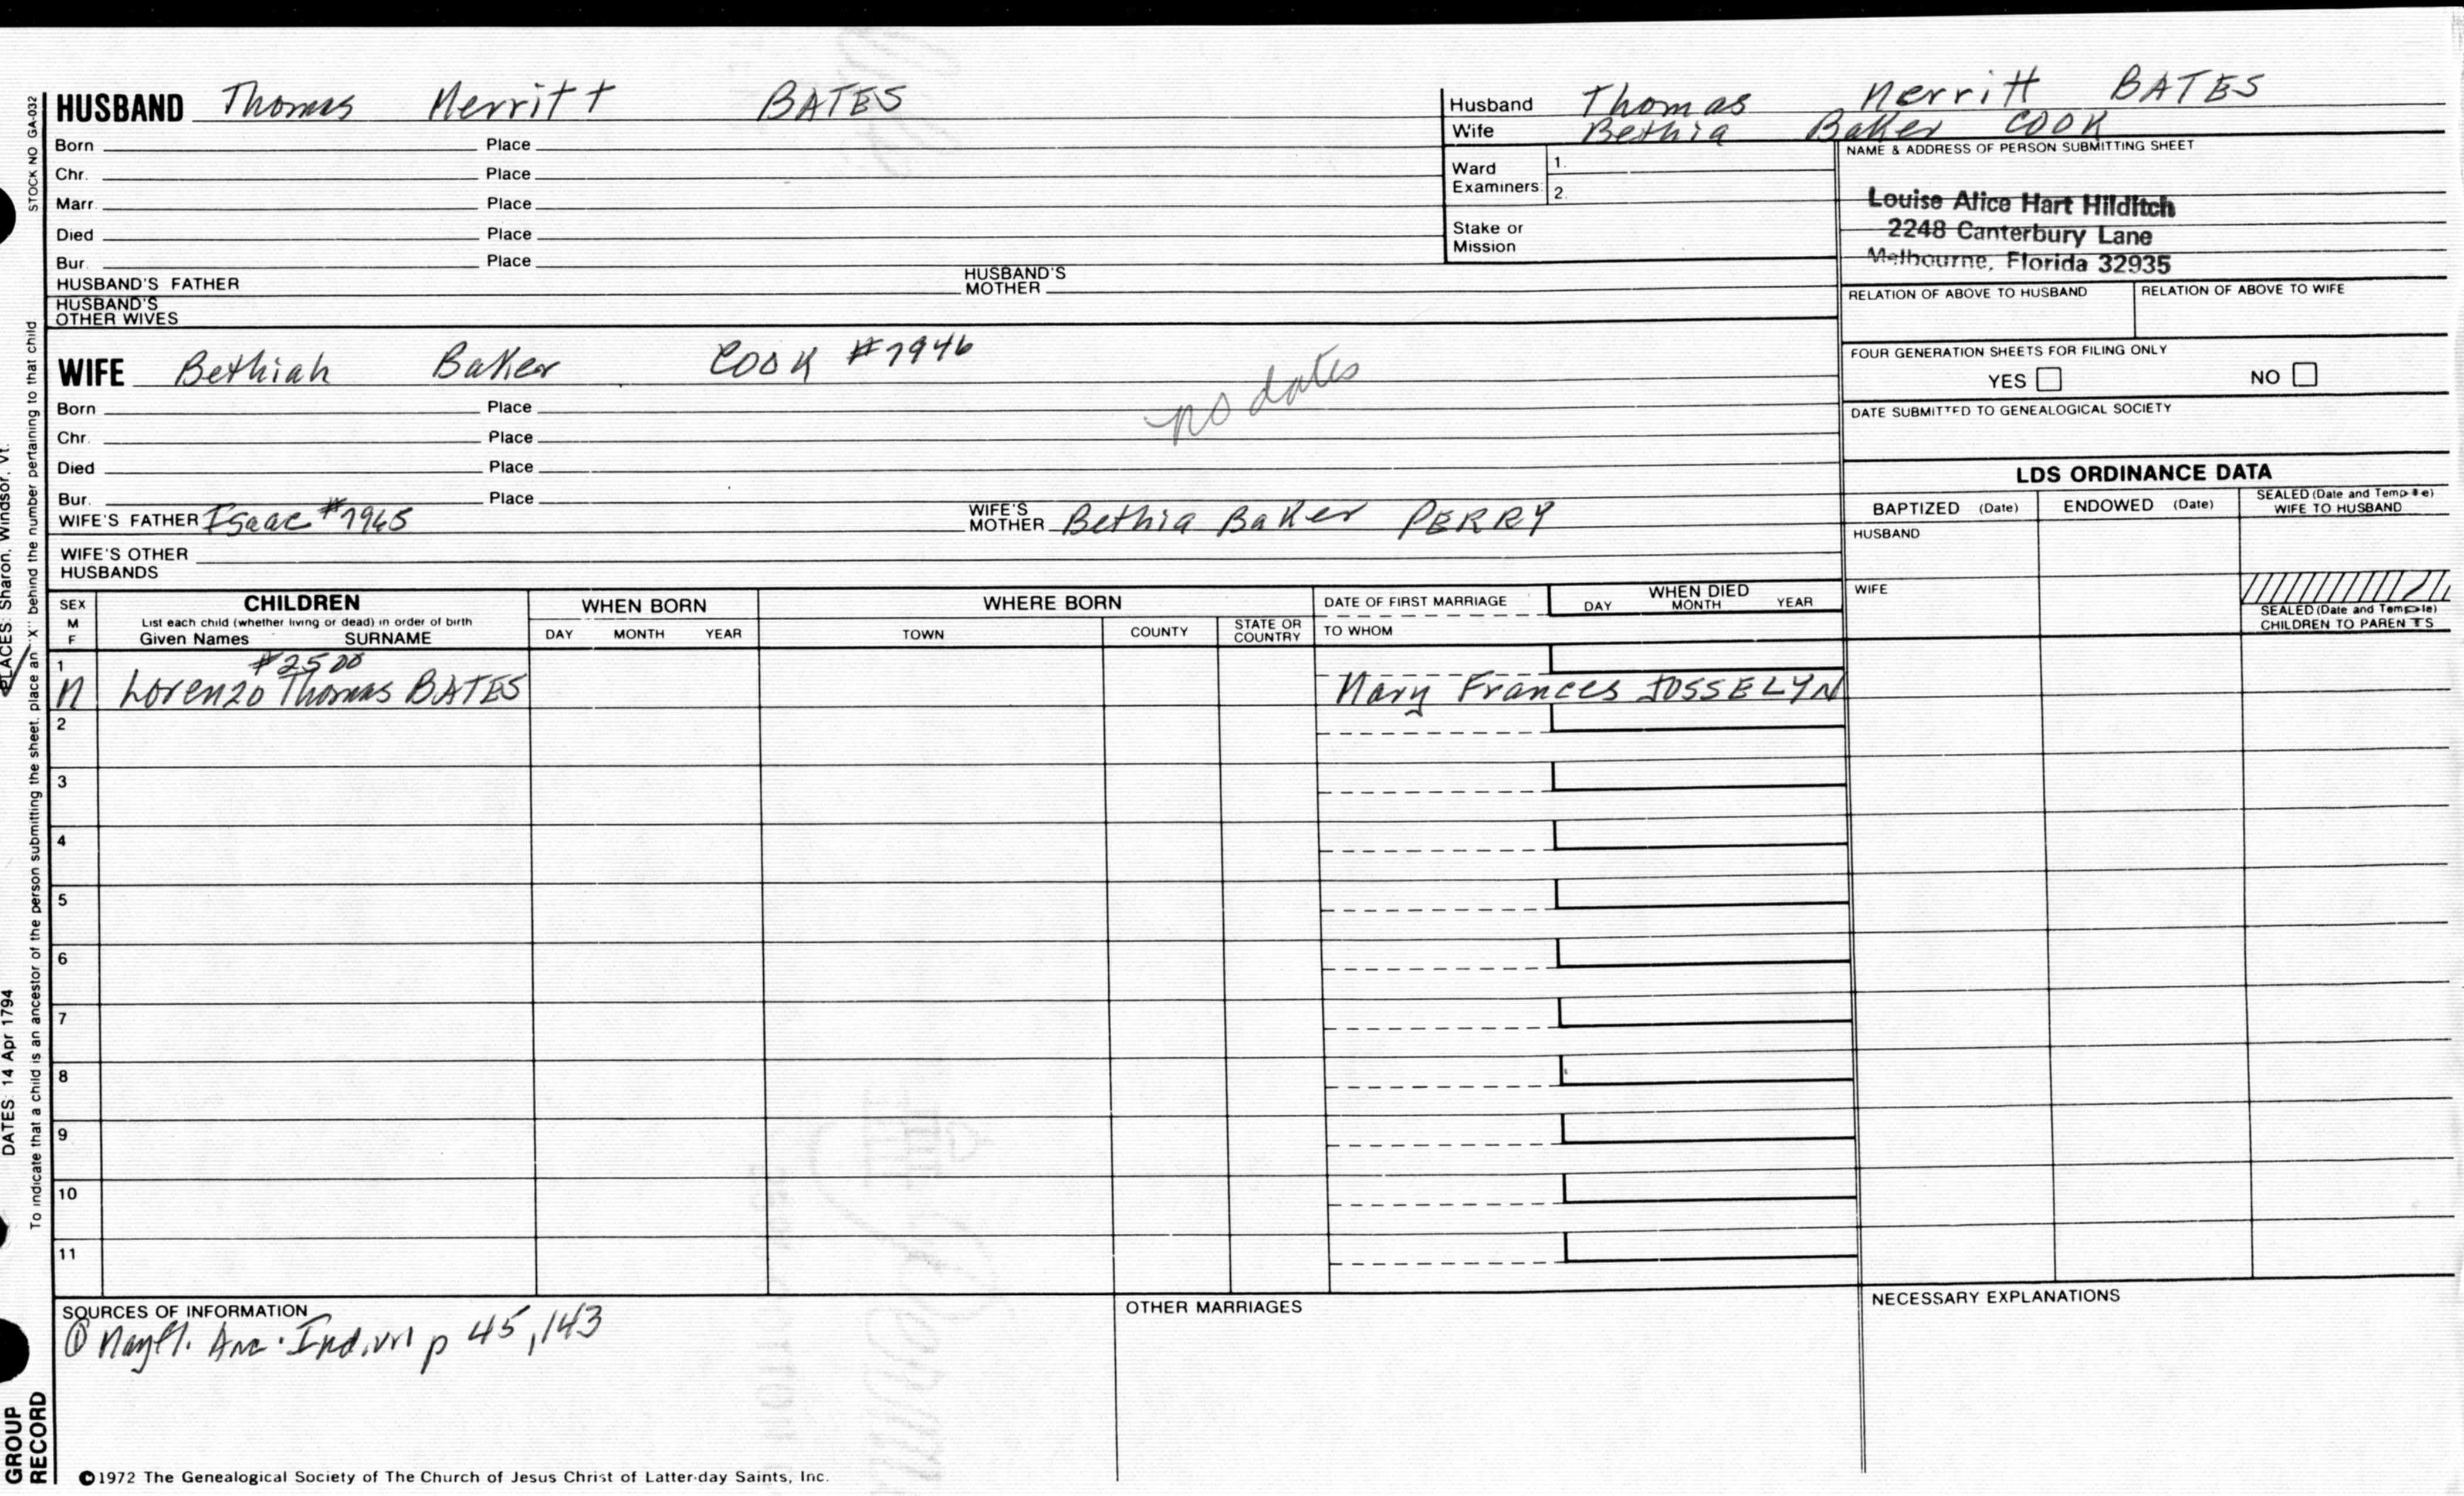 HUSBAND Thomas Merritt BATES
Born Place
Chr. Place
Marr. Place
Died Place
Bur. Place
HUSBAND'S FATHER HUSBAND'S MOTHER
HUSBAND'S OTHER WIVES
Husband Thomas Merritt BATES
Wife Bethia Baker COOK
Ward Examiners: 1.
2.
Stake or Mission
NAME & ADDRESS OF PERSON SUBMITTING SHEET
Louise Alice Hart Hilditch
2248 Canterbury Lane
Melbourne, Florida 32935
RELATION OF ABOVE TO HUSBAND RELATION OF ABOVE TO WIFE
FOUR GENERATION SHEETS FOR FILING ONLY
YES NO
DATE SUBMITTED TO GENEALOGICAL SOCIETY
WIFE Bethiah Baker COOK #1946
no dates
Born Place
Chr. Place
Died Place
Bur. Place
WIFE'S FATHER Isaac #1965 WIFE'S MOTHER Bethia Baker PERRY
WIFE'S OTHER HUSBANDS
LDS ORDINANCE DATA
BAPTIZED (Date) ENDOWED (Date) SEALED (Date and Temple) WIFE TO HUSBAND
HUSBAND
WIFE
SEALED (Date and Temple) CHILDREN TO PARENTS
SEX M F
CHILDREN
List each child (whether living or dead) in order of birth
Given Names SURNAME
WHEN BORN
DAY MONTH YEAR
WHERE BORN
TOWN COUNTY STATE OR COUNTRY
DATE OF FIRST MARRIAGE
TO WHOM
WHEN DIED
DAY MONTH YEAR
1 #2500
M Lorenzo Thomas BATES Mary Frances JOSSELYN
2
3
4
5
6
7
8
9
10
11
SOURCES OF INFORMATION
① Mayfl. Anc. p 45, 143
OTHER MARRIAGES
NECESSARY EXPLANATIONS
©1972 The Genealogical Society of The Church of Jesus Christ of Latter-day Saints, Inc.
STOCK NO GA-032
To indicate that a child is an ancestor of the person submitting the sheet, place an "X" behind the number pertaining to that child
PLACES: Sharon, Windsor, Vt.
DATES: 14 Apr 1794
GROUP
RECORD